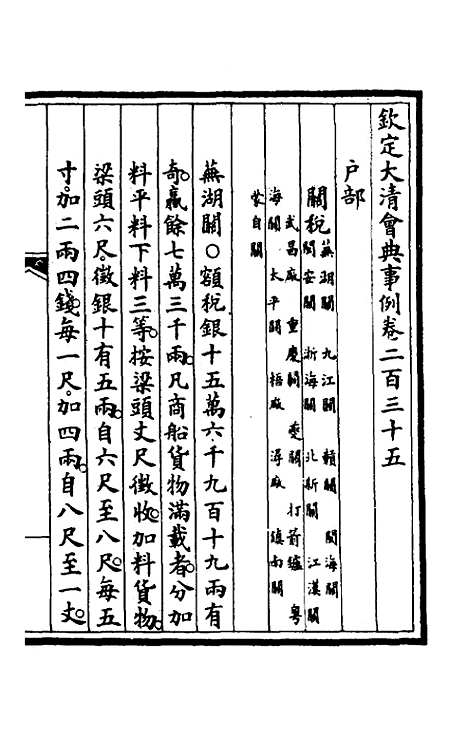 欽定大清會典事例卷二百三十五
戶部
關稅蕪湖關 九江關 贛關 閩海關
閩安關 浙海關 北新關 江漢關
武昌廠 重慶關 夔關 打箭爐 粵
海關 太平關 梧廠 潯廠 鎮南關
蒙自關
蕪湖關○額稅銀十五萬六千九百十九兩有
奇。贏餘七萬三千兩。凡商船貨物滿載者。分加
料平料下料三等。按梁頭丈尺徵收。加料貨物。
梁頭六尺。徵銀十有五兩。自六尺至八尺。每五
寸。加二兩四錢。每一尺。加四兩。自八尺至一丈。